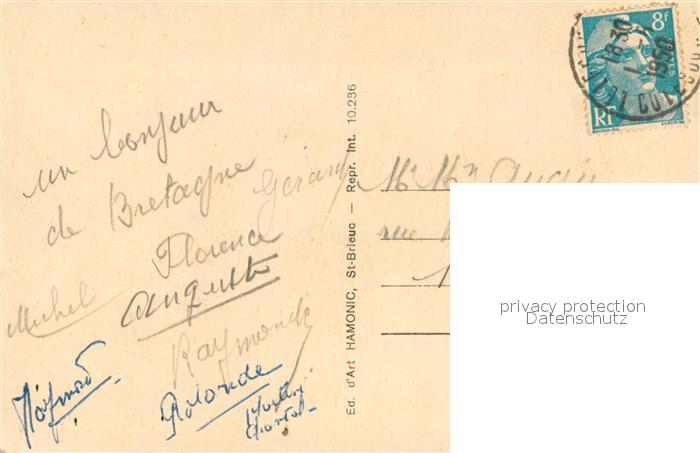 un bonjour
de Bretagne
Gérard
Florence
Michel
Auguste
Raymonde
Raymond
Rolande
Ed. d'Art HAMONIC, St-Brieuc — Repr. Int. 10.286
8F
RF
18 30
1950
Mr Mme
rue
privacy protection
Datenschutz